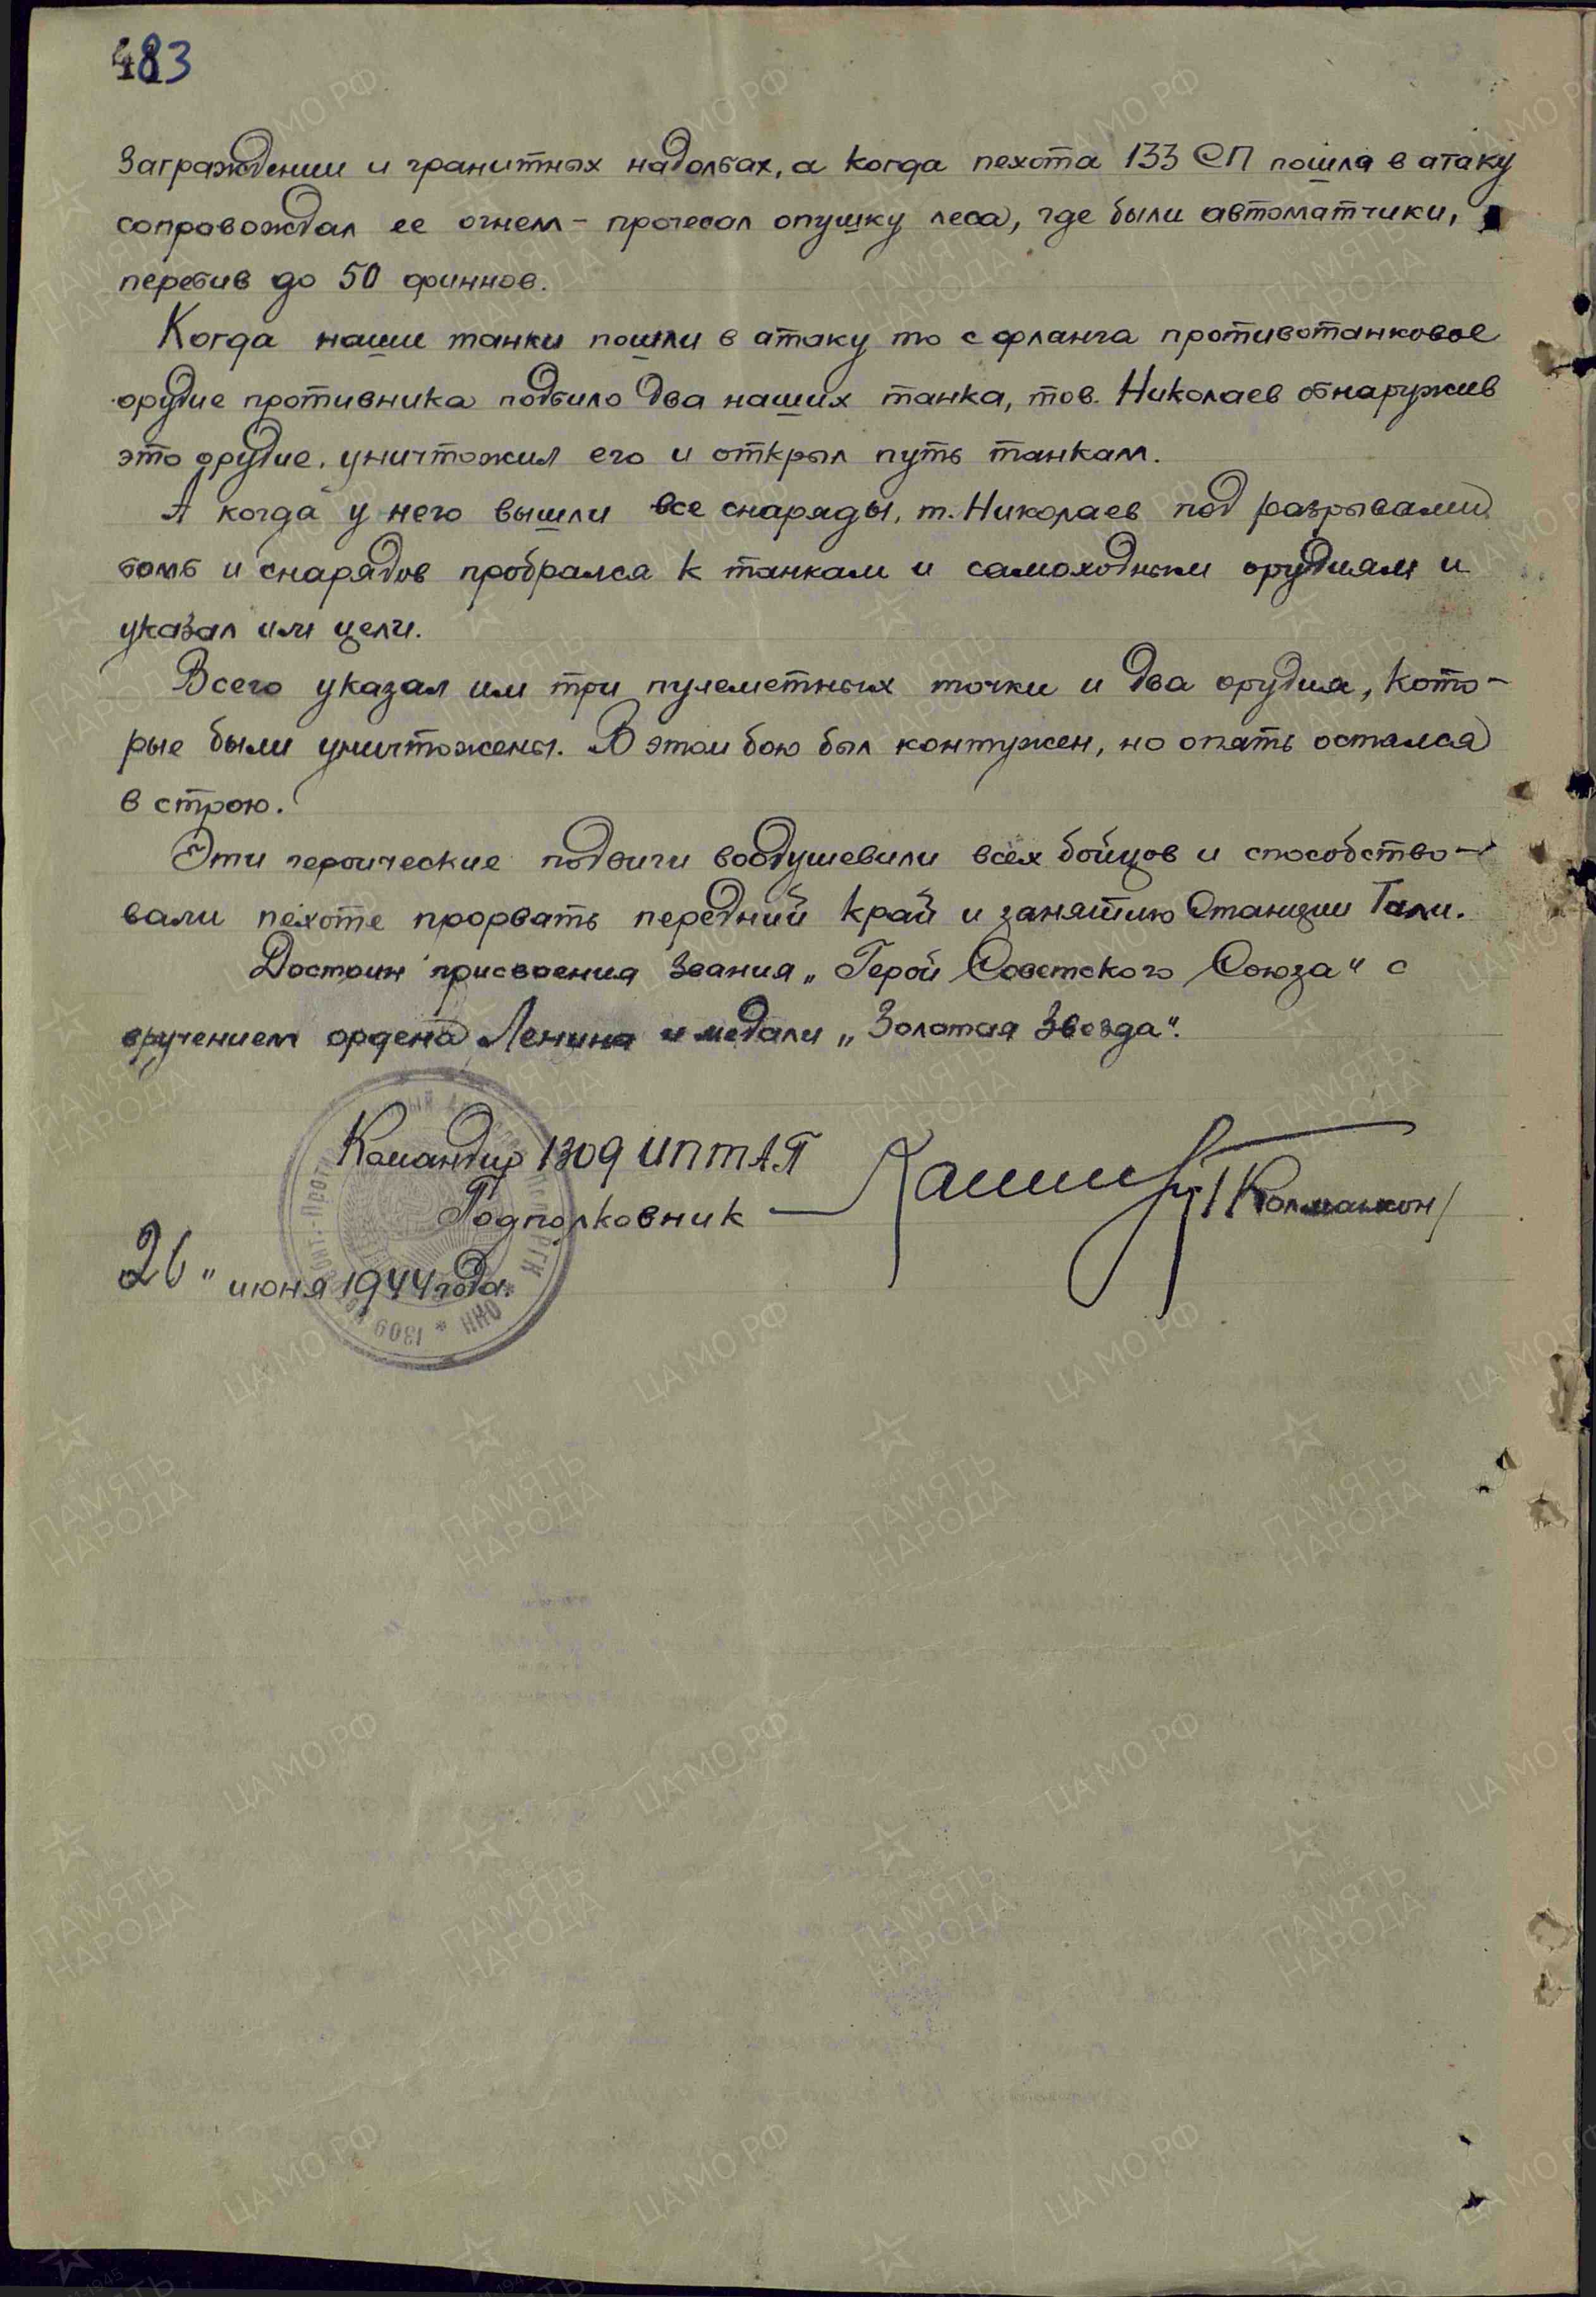 483
Заграждении и гранитных надолбах, а когда пехота 133 СП пошла в атаку
сопровождал ее огнем - прочесал опушку леса, где были автоматчики,
перебив до 50 финнов.
Когда наши танки пошли в атаку то с фланга противотанковое
орудие противника подбило два наших танка, тов. Николаев обнаружив
это орудие, уничтожил его и открыл путь танкам.
А когда у него вышли все снаряды, т. Николаев под разрывами
бомб и снарядов пробрался к танкам и самоходным орудиям и
указал им цели.
Всего указал им три пулеметных точки и два орудия, кото-
рые были уничтожены. В этом бою был контужен, но опять остался
в строю.
Эти героические подвиги воодушевили всех бойцов и способство-
вали пехоте прорвать передний край и занятию Станции Тали.
Достоин присвоения Звания „Герой Советского Союза" с
вручением ордена Ленина и медали „Золотая Звезда".
Командир 1309 ИПТАП
Подполковник
26 " июня 1944 года.